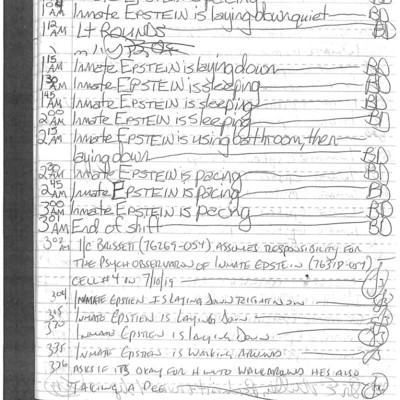 1 04 AM Inmate EPSTEIN is laying down quiet BD
1 12 AM Lt ROUNDS BD
1 15 AM Inmate EPSTEIN is laying down BD
1 30 AM Inmate EPSTEIN is sleeping BD
1 45 AM Inmate EPSTEIN is sleeping BD
2 00 AM Inmate EPSTEIN is sleeping BD
2 15 AM Inmate EPSTEIN is using bathroom, then
laying down BD
2 30 AM Inmate EPSTEIN is pacing BD
2 45 AM Inmate EPSTEIN is pacing BD
3 00 AM Inmate EPSTEIN is pacing BD
3 01 AM End of shift BD
302 I/C BRISSETT (76269-054) ASSUMES RESPONSIBILITY FOR
THE PSYCH OBSERVATION OF INMATE EPSTEIN (76318-054)
CELL #4 IN 7/10/19
304 INMATE EPSTIEN IS LAYING DOWN RIGHT NOW
315 INMATE EPSTIEN IS LAYING DOWN
320 INMATE EPSTIEN IS LAYING DOWN
335 INMATE EPSTIEN IS WALKING AROUND
336 ASKS IF ITS OKAY FOR HIM TO WALK AROUND HES ALSO
TAKING A PEE